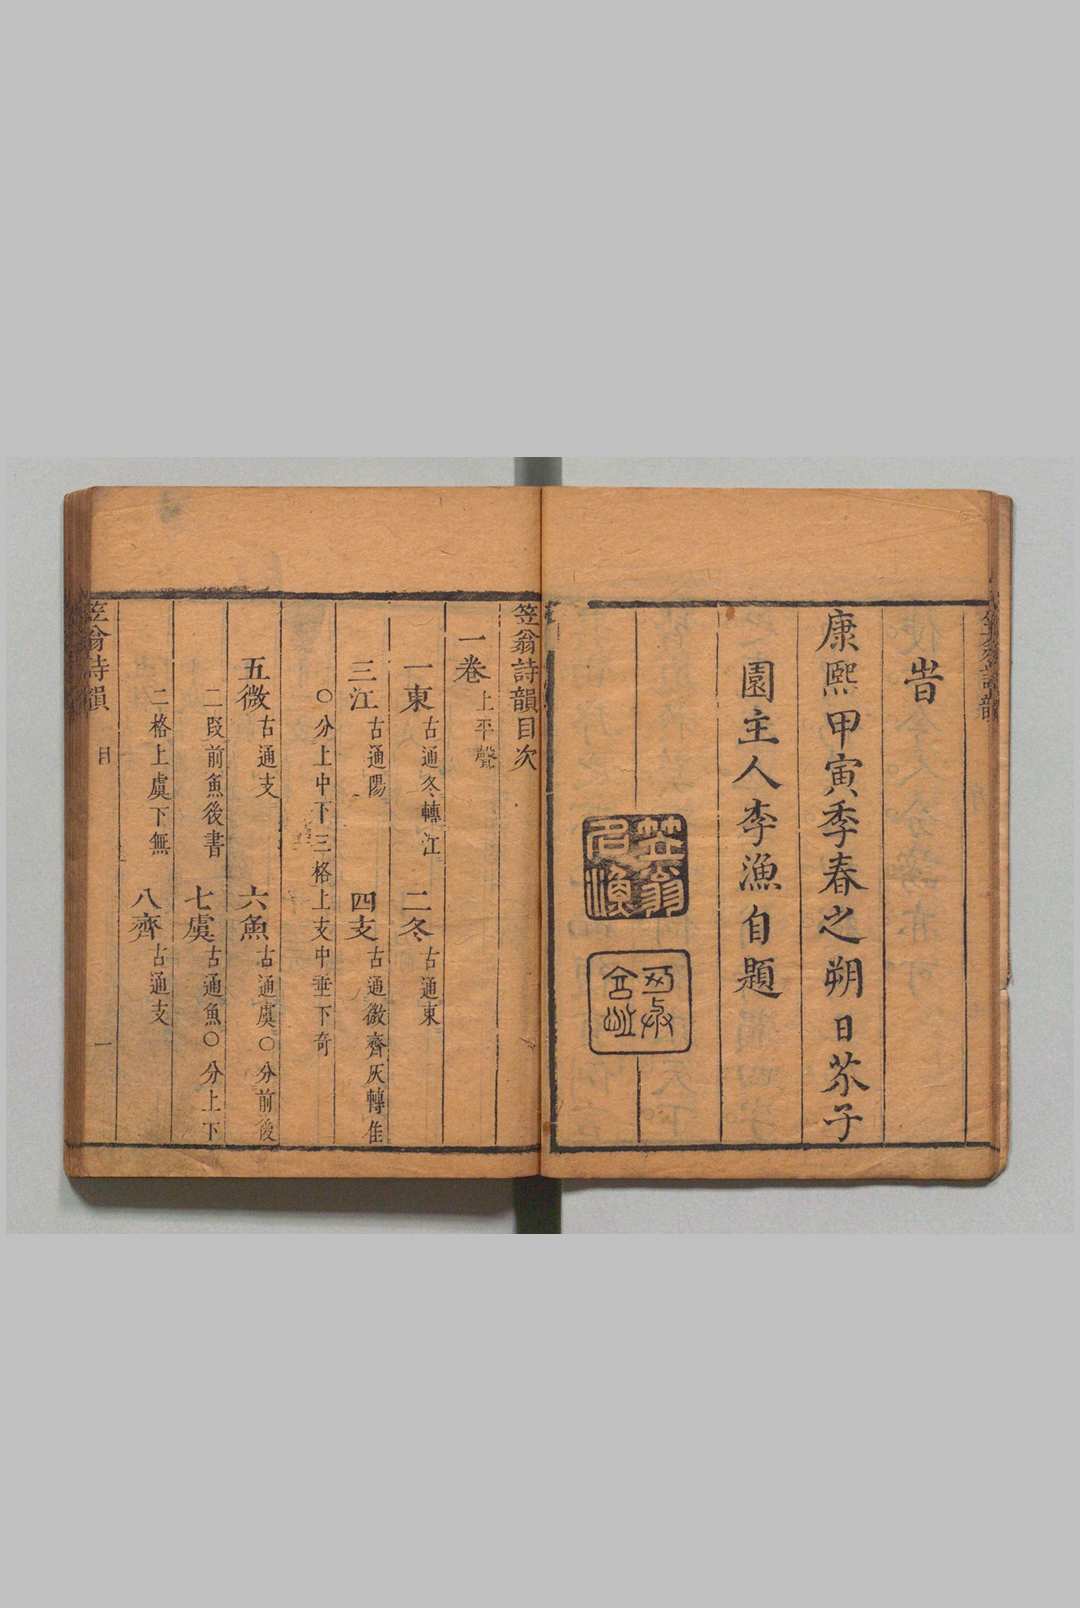 旹
康熙甲寅季春之朔日芥子
園主人李漁自題
笠翁
笠翁詩韻
笠翁詩韻目次
一卷上平聲
一東古通冬轉江 二冬古通東
三江古通陽 四支古通微齊灰轉佳
○分上中下三格上支中垂下奇
五微古通支 六魚古通虞○分前後
二段前魚後書 七虞古通魚○分上下
二格上虞下無 八齊古通支
笠翁詩韻 目 一